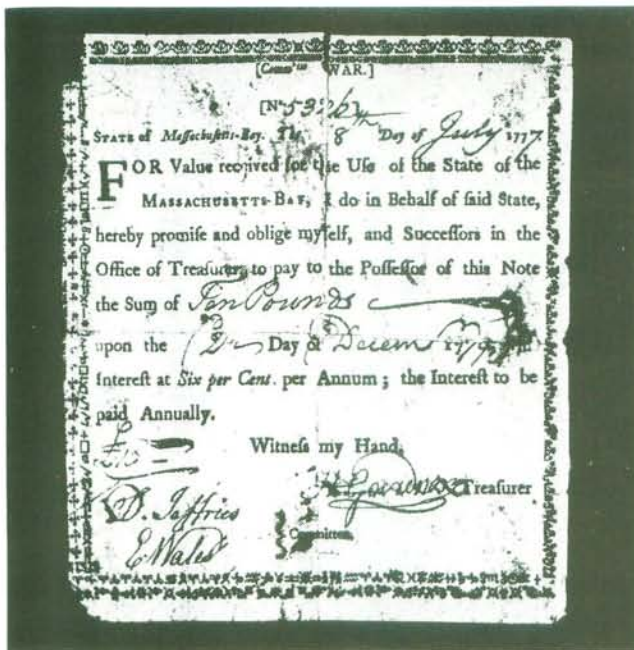 WAR.]
[No
STATE of Massachusetts-Bay. The 8th Day of July 1777
FOR Value received for the Use of the State of the
MASSACHUSETTS-BAY, I do in Behalf of said State,
hereby promise and oblige myself, and Successors in the
Office of Treasurer, to pay to the Possessor of this Note
the Sum of Ten Pounds
upon the 2d Day of Decem
Interest at Six per Cent. per Annum; the Interest to be
paid Annually.
£10
Witness my Hand,
Treasurer
D. Jeffries
E Wales
Committee